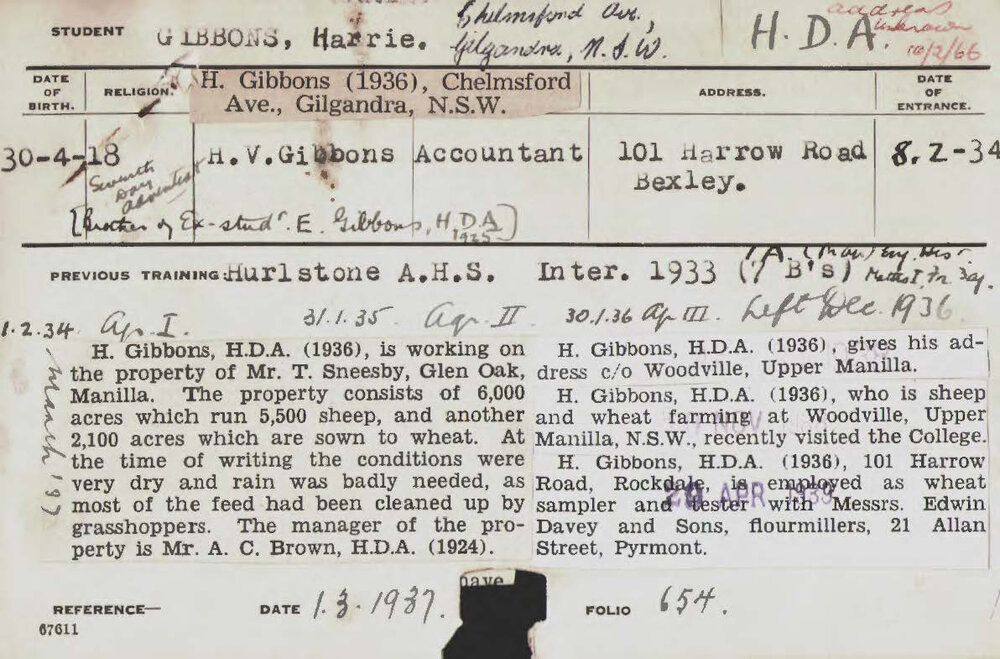 STUDENT GIBBONS, Harrie. Chelmsford Ave., Gilgandra, N.S.W. H.D.A. address unknown 10/2/66
DATE OF BIRTH. RELIGION. H. Gibbons (1936), Chelmsford Ave., Gilgandra, N.S.W. ADDRESS. DATE OF ENTRANCE.
30-4-18 H.V.Gibbons Accountant 101 Harrow Road Bexley. 8.2-34
Seventh Day Adventist
[Brother of Ex-studt. E. Gibbons, H.D.A 1935]
PREVIOUS TRAINING: Hurlstone A.H.S. Inter. 1933 (7 B's)
1.2.34 Ag. I. 31.1.35 Ag. II 30.1.36 Ag III. Left Dec. 1936
March '37
H. Gibbons, H.D.A. (1936), is working on
the property of Mr. T. Sneesby, Glen Oak,
Manilla. The property consists of 6,000
acres which run 5,500 sheep, and another
2,100 acres which are sown to wheat. At
the time of writing the conditions were
very dry and rain was badly needed, as
most of the feed had been cleaned up by
grasshoppers. The manager of the pro-
perty is Mr. A. C. Brown, H.D.A. (1924).
H. Gibbons, H.D.A. (1936), gives his ad-
dress c/o Woodville, Upper Manilla.
H. Gibbons, H.D.A. (1936), who is sheep
and wheat farming at Woodville, Upper
Manilla, N.S.W., recently visited the College.
NOV
H. Gibbons, H.D.A. (1936), 101 Harrow
Road, Rockdale, is employed as wheat
sampler and tester with Messrs. Edwin
Davey and Sons, flourmillers, 21 Allan
Street, Pyrmont.
APR 1939
REFERENCE— DATE 1.3.1937. FOLIO 654.
67611